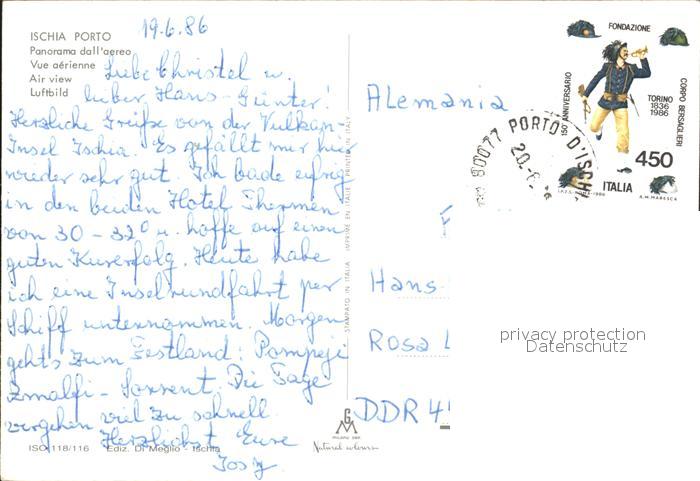 19.6.86
ISCHIA PORTO
Panorama dall'aereo
Vue aérienne
Air view
Luftbild
Liebe Christel u.
lieber Hans-Günter!
Herzliche Grüße von der Vulkan-
Insel Ischia. Es gefällt mir hier
wieder sehr gut. Ich bade eifrig
in den beiden Hotel Thermen
von 30 - 32° u. hoffe auf einen
guten Kurerfolg. Heute habe
ich eine Inselrundfahrt per
Schiff unternommen. Morgen
geht's zum Festland: Pompeji
Amalfi - Sorrent. Die Tage
vergehen viel zu schnell.
Herzlichst Eure
ISO 118/116 Ediz. Di Meglio - Ischia
STAMPATO IN ITALIA IMPRIMÉ EN ITALIE PRINTED IN ITALY
GM
MILANO
Natural colours
Alemania
Hans-
Rosa L
DDR 4
FONDAZIONE
CORPO BERSAGLIERI
150° ANNIVERSARIO
TORINO
1836
1986
450
ITALIA
I.P.Z.S.-ROMA-1986
A.M. MARESCA
80077 PORTO D'ISCH
20.-6.
privacy protection
Datenschutz